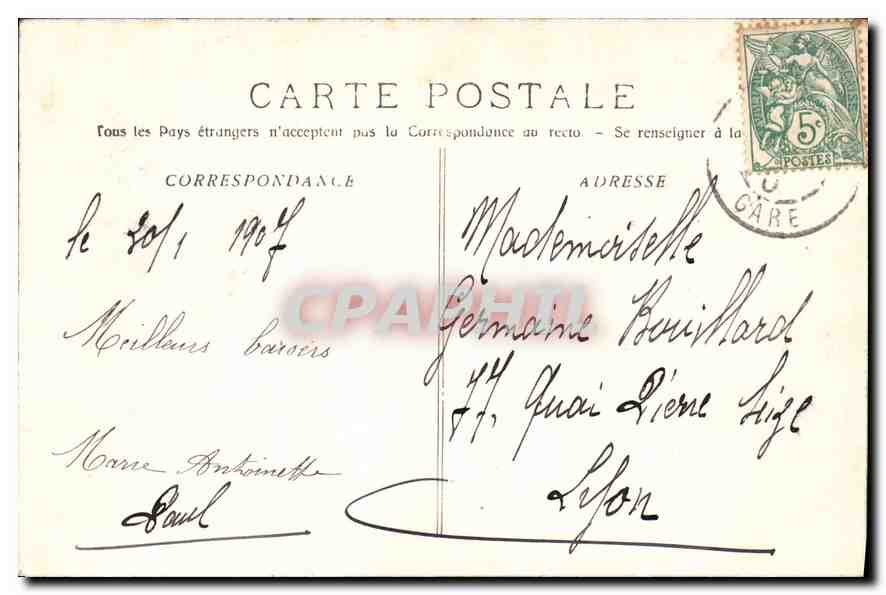 CARTE POSTALE
Tous les Pays étrangers n'acceptent pas la Correspondance au recto. - Se renseigner à la
CORRESPONDANCE
ADRESSE
5c
POSTES
GARE
le 20/1 1907
Meilleurs baisers
Marie Antoinette
Paul
Mademoiselle
Germaine Bouillard
77, Quai Pierre Seize
Lyon
CPAPHIL